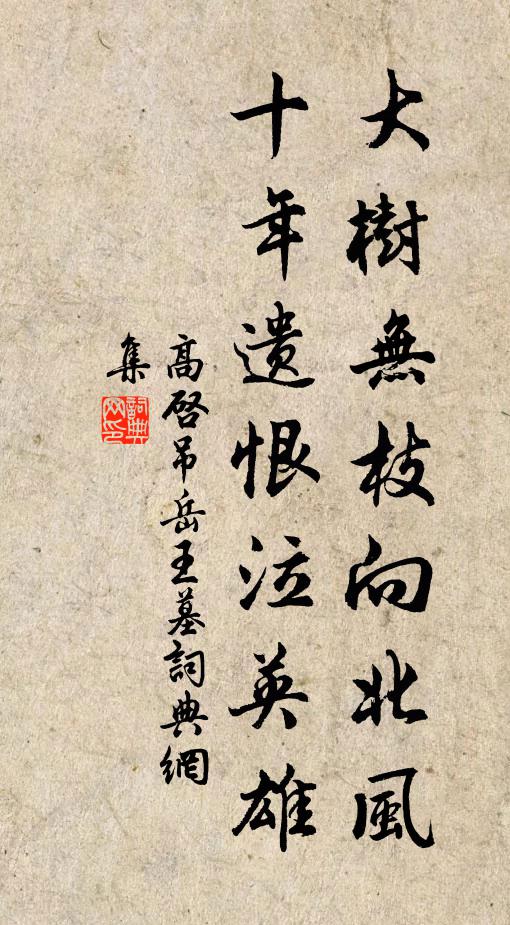 大樹無枝向北風
十年遺恨泣英雄
高啓吊岳王墓詞典網
集
詞典
网印